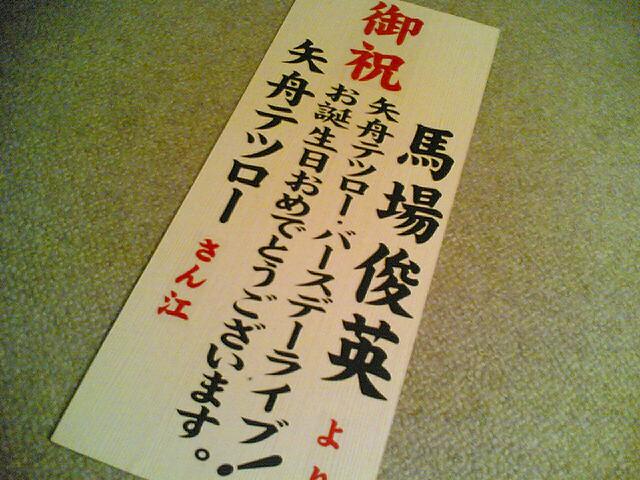 御祝
馬場俊英 より
矢舟テツロー・バースデーライブ!
お誕生日おめでとうございます。
矢舟テツロー さん江